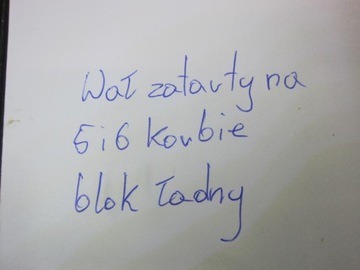 Wał zatarty na
5 i 6 korbie
blok ładny